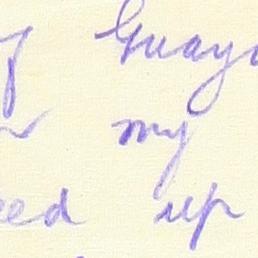 Guay
my
eed up